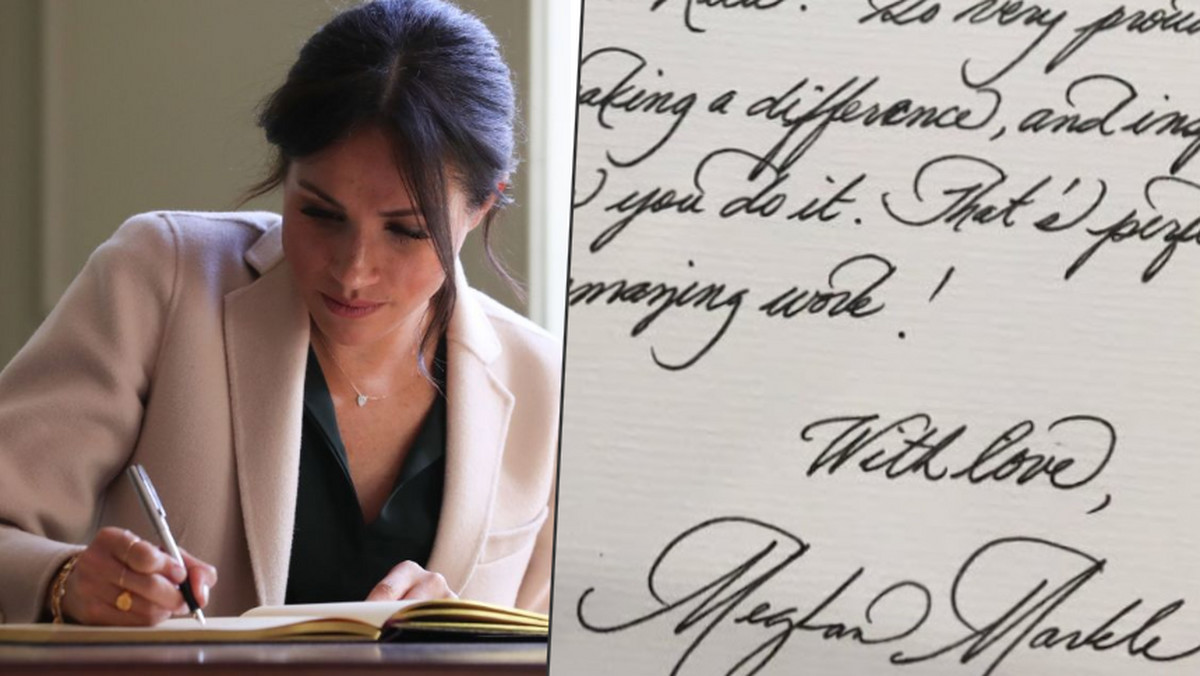 So very prou
aking a difference, and in
you do it. That's perf
amazing work!
With love,
Meghan Markle